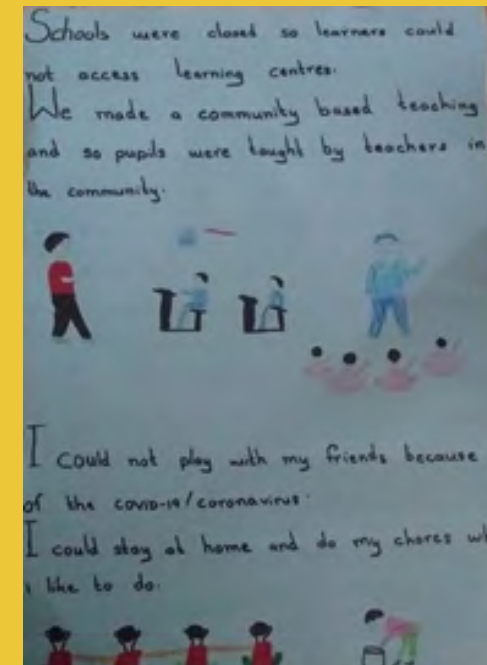 Schools were closed so learners could
not access learning centres.
We made a community based teaching
and so pupils were taught by teachers in
the community.
I could not play with my friends because
of the covid-19/coronavirus.
I could stay at home and do my chores
i like to do.